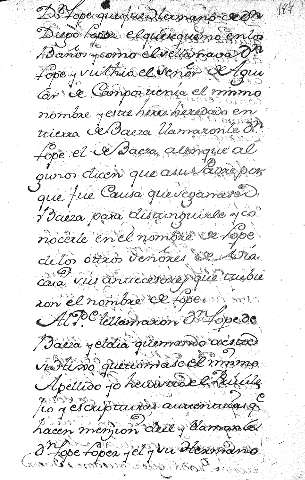 147
Dn Lope que fue Hermano de Dn
Diego Lopez el que quemo en los
baños y como el se llamava Dn
Lope y su thio el señor de Agui
lar de Campo tenia el mismo
nombre y este hera heredado en
tierra de Baeza llamaronle Dn
Lope el de Baeza, aunque al
gunos dicen que a su Padre por
que fue Causa que se ganase
Baeza para distinguirle y co
nocerle en el nombre de Lope
de los otros señores de
casa sus antecesores que tubie
ron el nombre de Lope.
Al Pe le llamaron Dn Lope de
Baeza y el dia que mando
su hijo que tomase el mismo
Apellido yo he visto
rio y escripturas autorizadas qe
hacen menzion de el y llamanle
Dn Lope Lopez y el y su Hermano